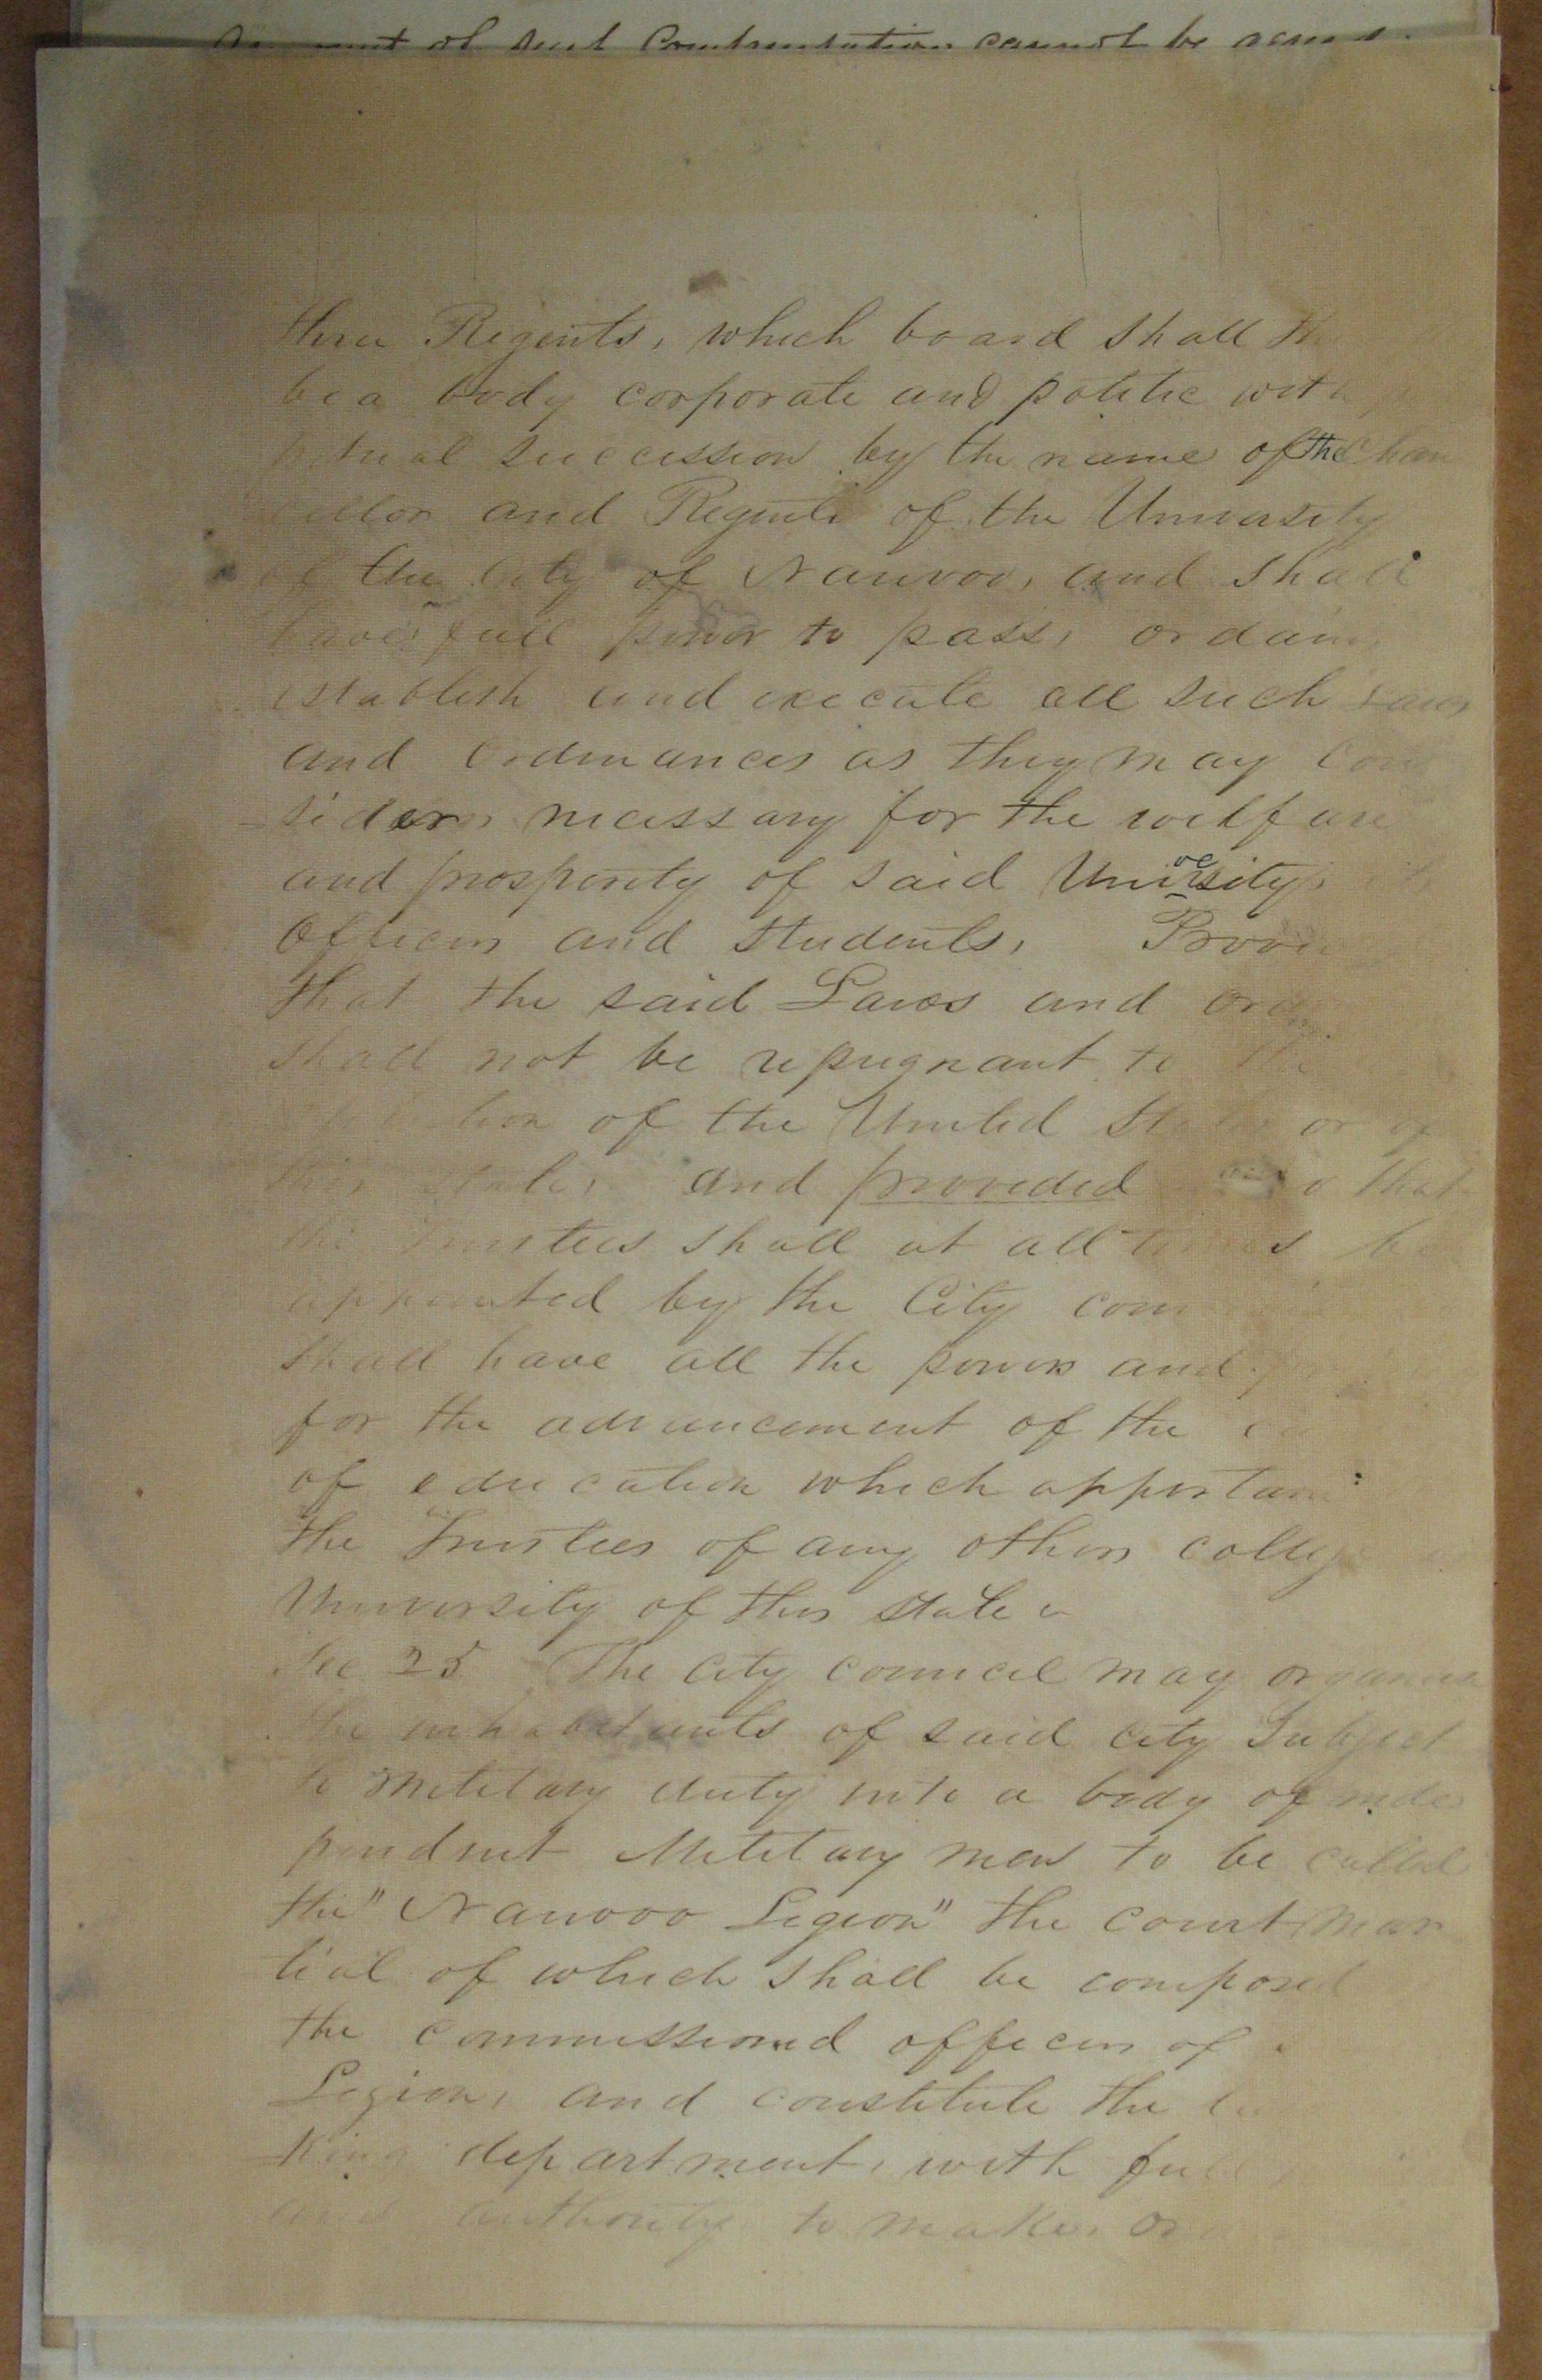 of such cannot be
three Regents, which board shall
be a body corporate and politic with
succession by the name of the Chan
cellor and Regents of the University
of the City of Nauvoo, and shall
have full power to pass, ordain,
establish and execute all such Laws
and Ordinances as they may Con
sider necessary for the welfare
and prosperity of said University, its
Officers and Students,
that the said Laws and
shall not be repugnant to the
of the United States or of
this state, and provided that
the Trustees shall at all times be
appointed by the City
shall have all the powers and
for the advancement of the
of education which appertain
the Trustees of any other college
University of this State
Sec 25 The City council may organize
the inhabitants of said city Subject
to Military duty into a body of inde
pendent Military men to be called
the "Nauvoo Legion" the court mar
tial of which shall be composed
the commissioned officers of
Legion, and constitute the
king department, with full
and authority to make,